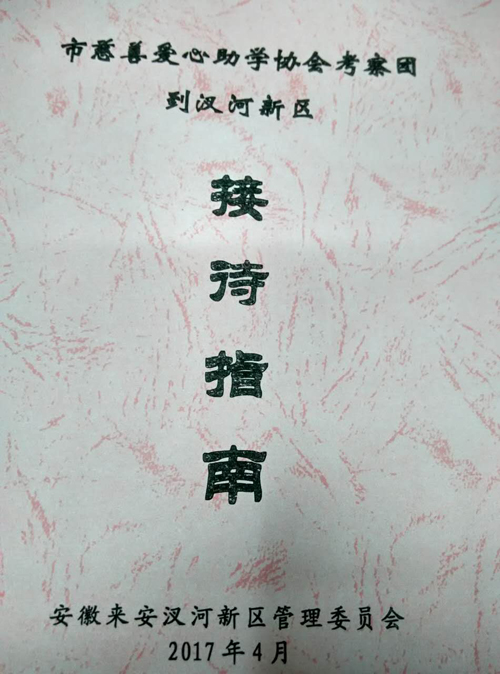 市慈善爱心助学协会考察团
到汊河新区
接
待
指
南
安徽来安汊河新区管理委员会
2017年4月